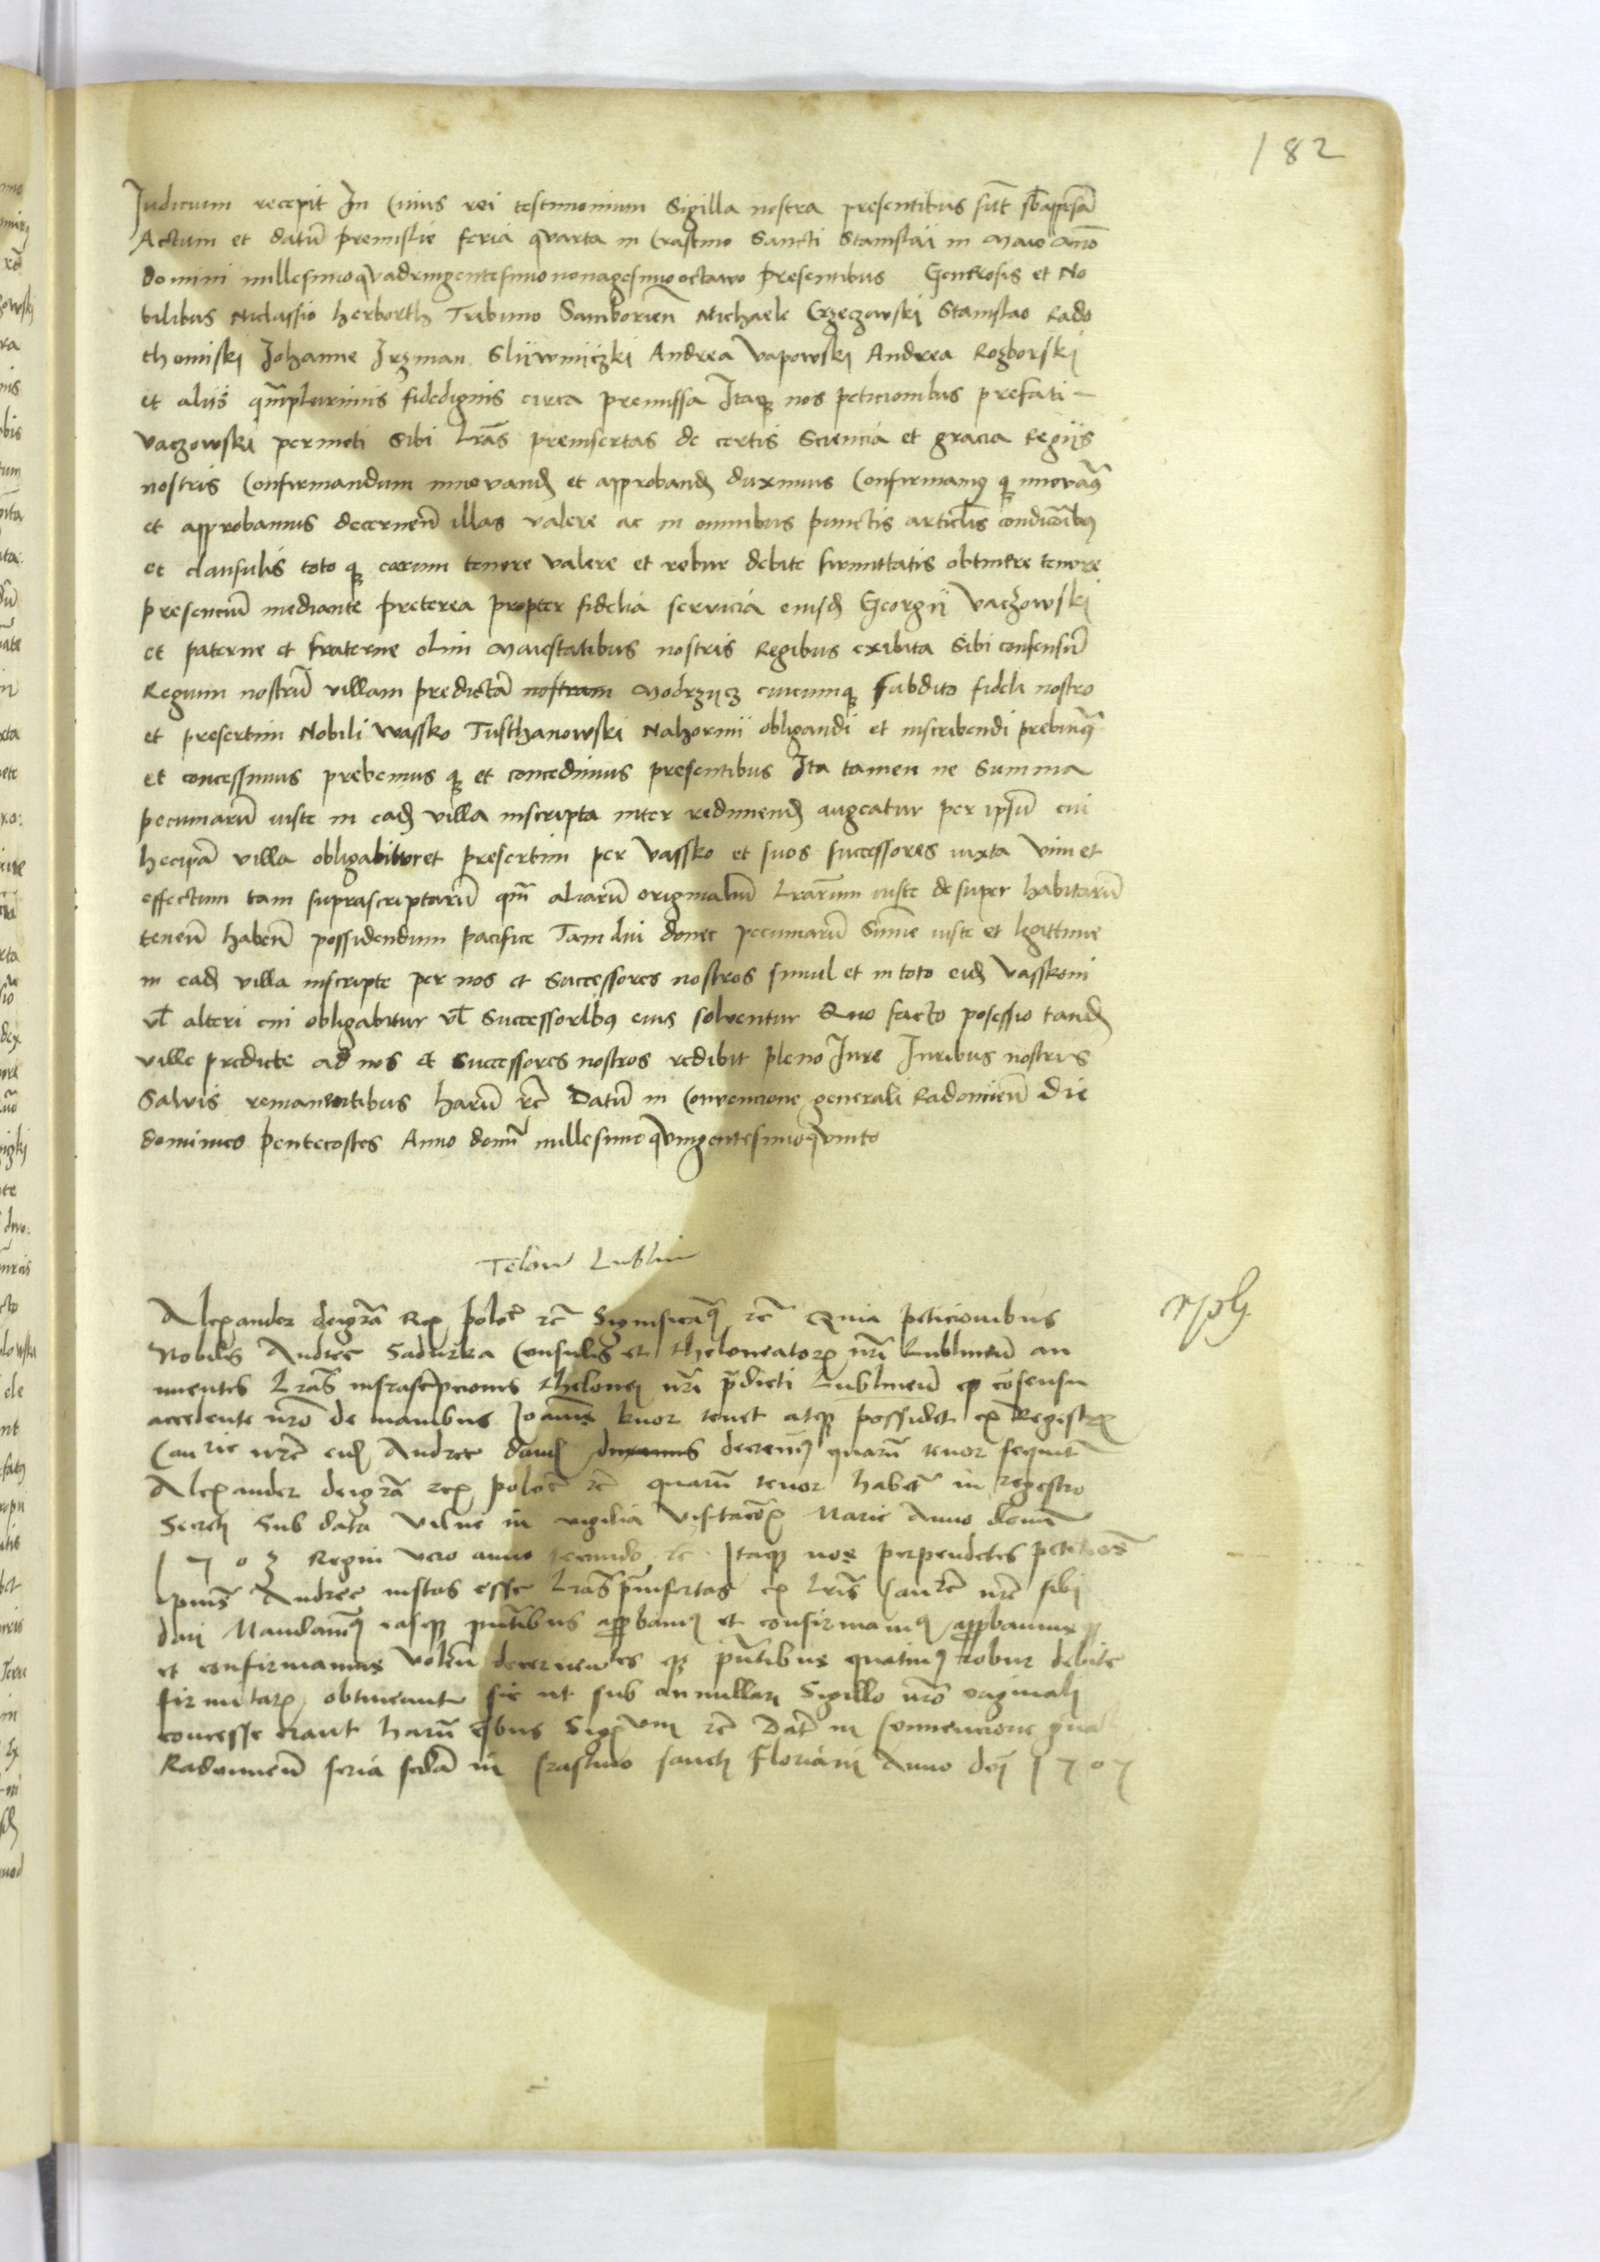 182
Judicium recepit In Cuius rei testimonium Sigilla nostra presentibus sūt sbappēsa
Actum et datū premislie feria qvarta in Crastino Sancti Stanislaii in Maio Anō
domini millesimoqvadringentesimononagesimooctavo presentibus Generosis et No
bilibus Niclassio herborth Tribuno Samborieñ Michaele Grzegzowski Stanislao Rado
chonski Johanne Irzman Sliiwniczki Andrea vapowski Andrea Rogborski
et aliis qmplurimis fidedignis circa premissa Itaq nos peticionibus prefati
vaczowski permoti sibi Lrās preinsertas de certis Sciencia et gracia Regiis
nostris Confirmandum innovand et approband duximus Confirmamq q innovamq
et approbamus decerneñ illas valere ac in omnibus punctis articlis condicōibq
et clausulis toto q earum tenore valere et robur debite firmittatis obtinere tenore
presenciū mediante preterea propter fidelia servicia eiusd Georgii Vaczowski
et paterne et fraterne olim Maiestatibus nostris Regibus exibita Sibi consensū
Regium nostrū villam predictā nostram Modrziicz cuicumq subdito fideli nostro
et presertim Nobili wassko Tusthanowski Nahornii obligandi et inscribendi prebuimq
et concessimus prebemus q et concedimus presentibus Ita tamen ne Summa
pecuniarū iuste in ead villa inscripta inter redimend augeatur per ipsū cui
hecipā villa obligabitur et presertim per vassko et suos successores iuxta vim et
effectum tam suprascriptarū qm aliarū originaliū Lrarum iuste desuper habitarū
teneñ habeñ possidendum pacifice Tamdiu donec pecuniarū Sume iuste et legittime
in ead villa inscripte per nos et Successores nostros simul et in toto eid vasskoni
vl alteri cui obligabitur vl Successoribq eius solventur Quo facto possessio tand
ville predicte ad nos et successores nostros redibit pleno Jure Juribus nostris
Salvis remanentibus harū rc Datū in Convencione generali Radomieñ die
dominico pentecostes Anno domi millesimoqvingentesimoqvinto
Telon Lublin
Alexander deigrā Rex poloē rc Significamq rc Quia peticionibus
Nobilis Andree Sadurka Consulis et theloneatorz nrī Lublineñ an
nuentes Lrās infrascripcionis thelonei nrī prdicti Lublineñ ex cōsensu
accedente nrō de manibus Joānis knor tenet atq possidet ex Regestrz
Canrie nrē eid Andree dand duximus decrevimq quarū tenor sequit
Alexander deigrā rex poloē rc quarū tenor habet in regestro
Secreti Sub data Vilne in vigilia visitacōis Marie Anno domi
1503 Regni vero anno secundo rc Itaq nos perpendētes peticiões
ipsius Andree iustas esse Lrās prinsertas ex Lris Canrē nrē sibi
dari Mandavimq easq pntibus approbamq et confirmamq approbamus q
et confirmamus voleñ decernentes q pntibus quatinq robur debite
firmitatis obtineant sic ut sub annullari Sigillo nrō originali
concesse erant harū qbus Sig rc Dat in Convencione gnali
Radomieñ feria scdā in Crastino sancti Floriani Anno dni 1505